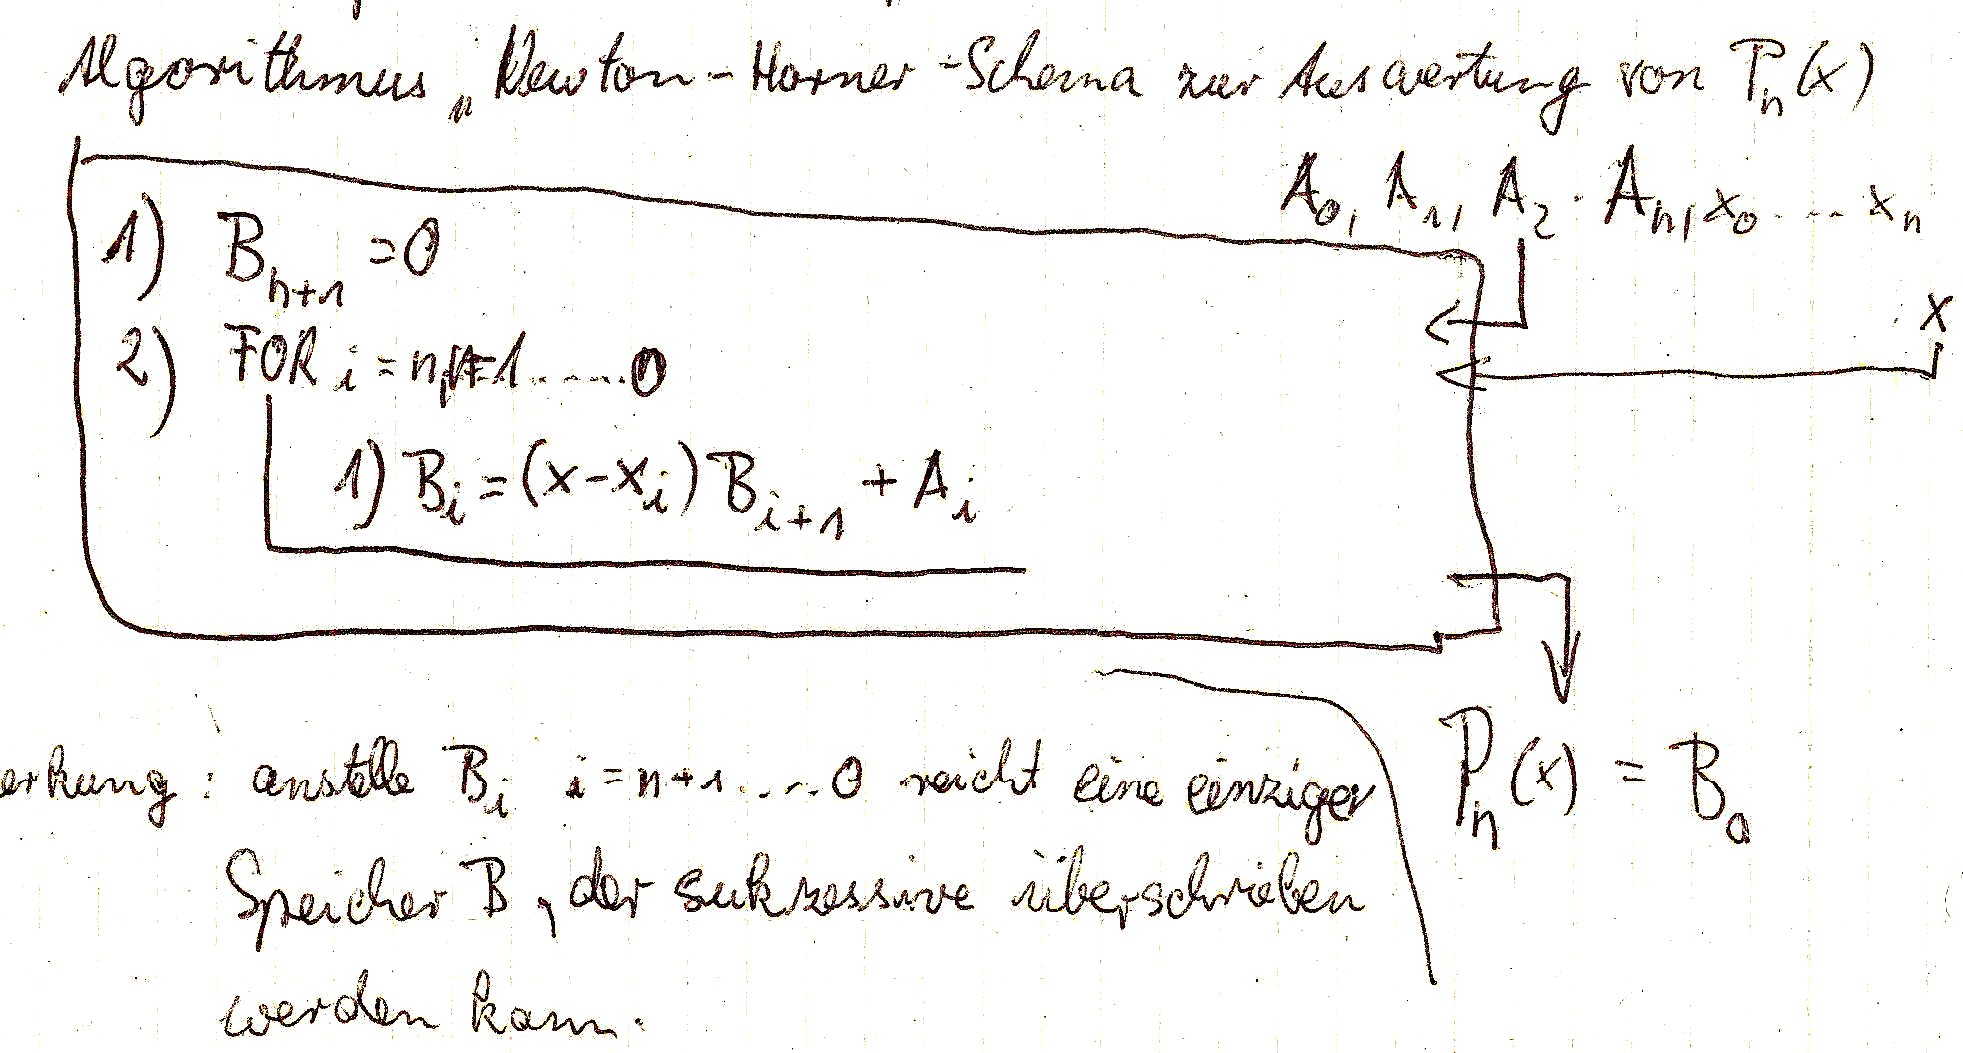 Algorithmus „Newton-Horner-Schema zur Auswertung von Pₙ(x)
A₀, A₁, A₂ . Aₙ, x₀ .... xₙ
1) Bₙ₊₁ = 0
x
2) FOR i = n, n-1 ..... 0
1) Bᵢ = (x-xᵢ) Bᵢ₊₁ + Aᵢ
erkung: anstelle Bᵢ i = n+1 .... 0 reicht eine einziger
Pₙ(x) = B₀
Speicher B, der sukzessive überschrieben
werden kann.